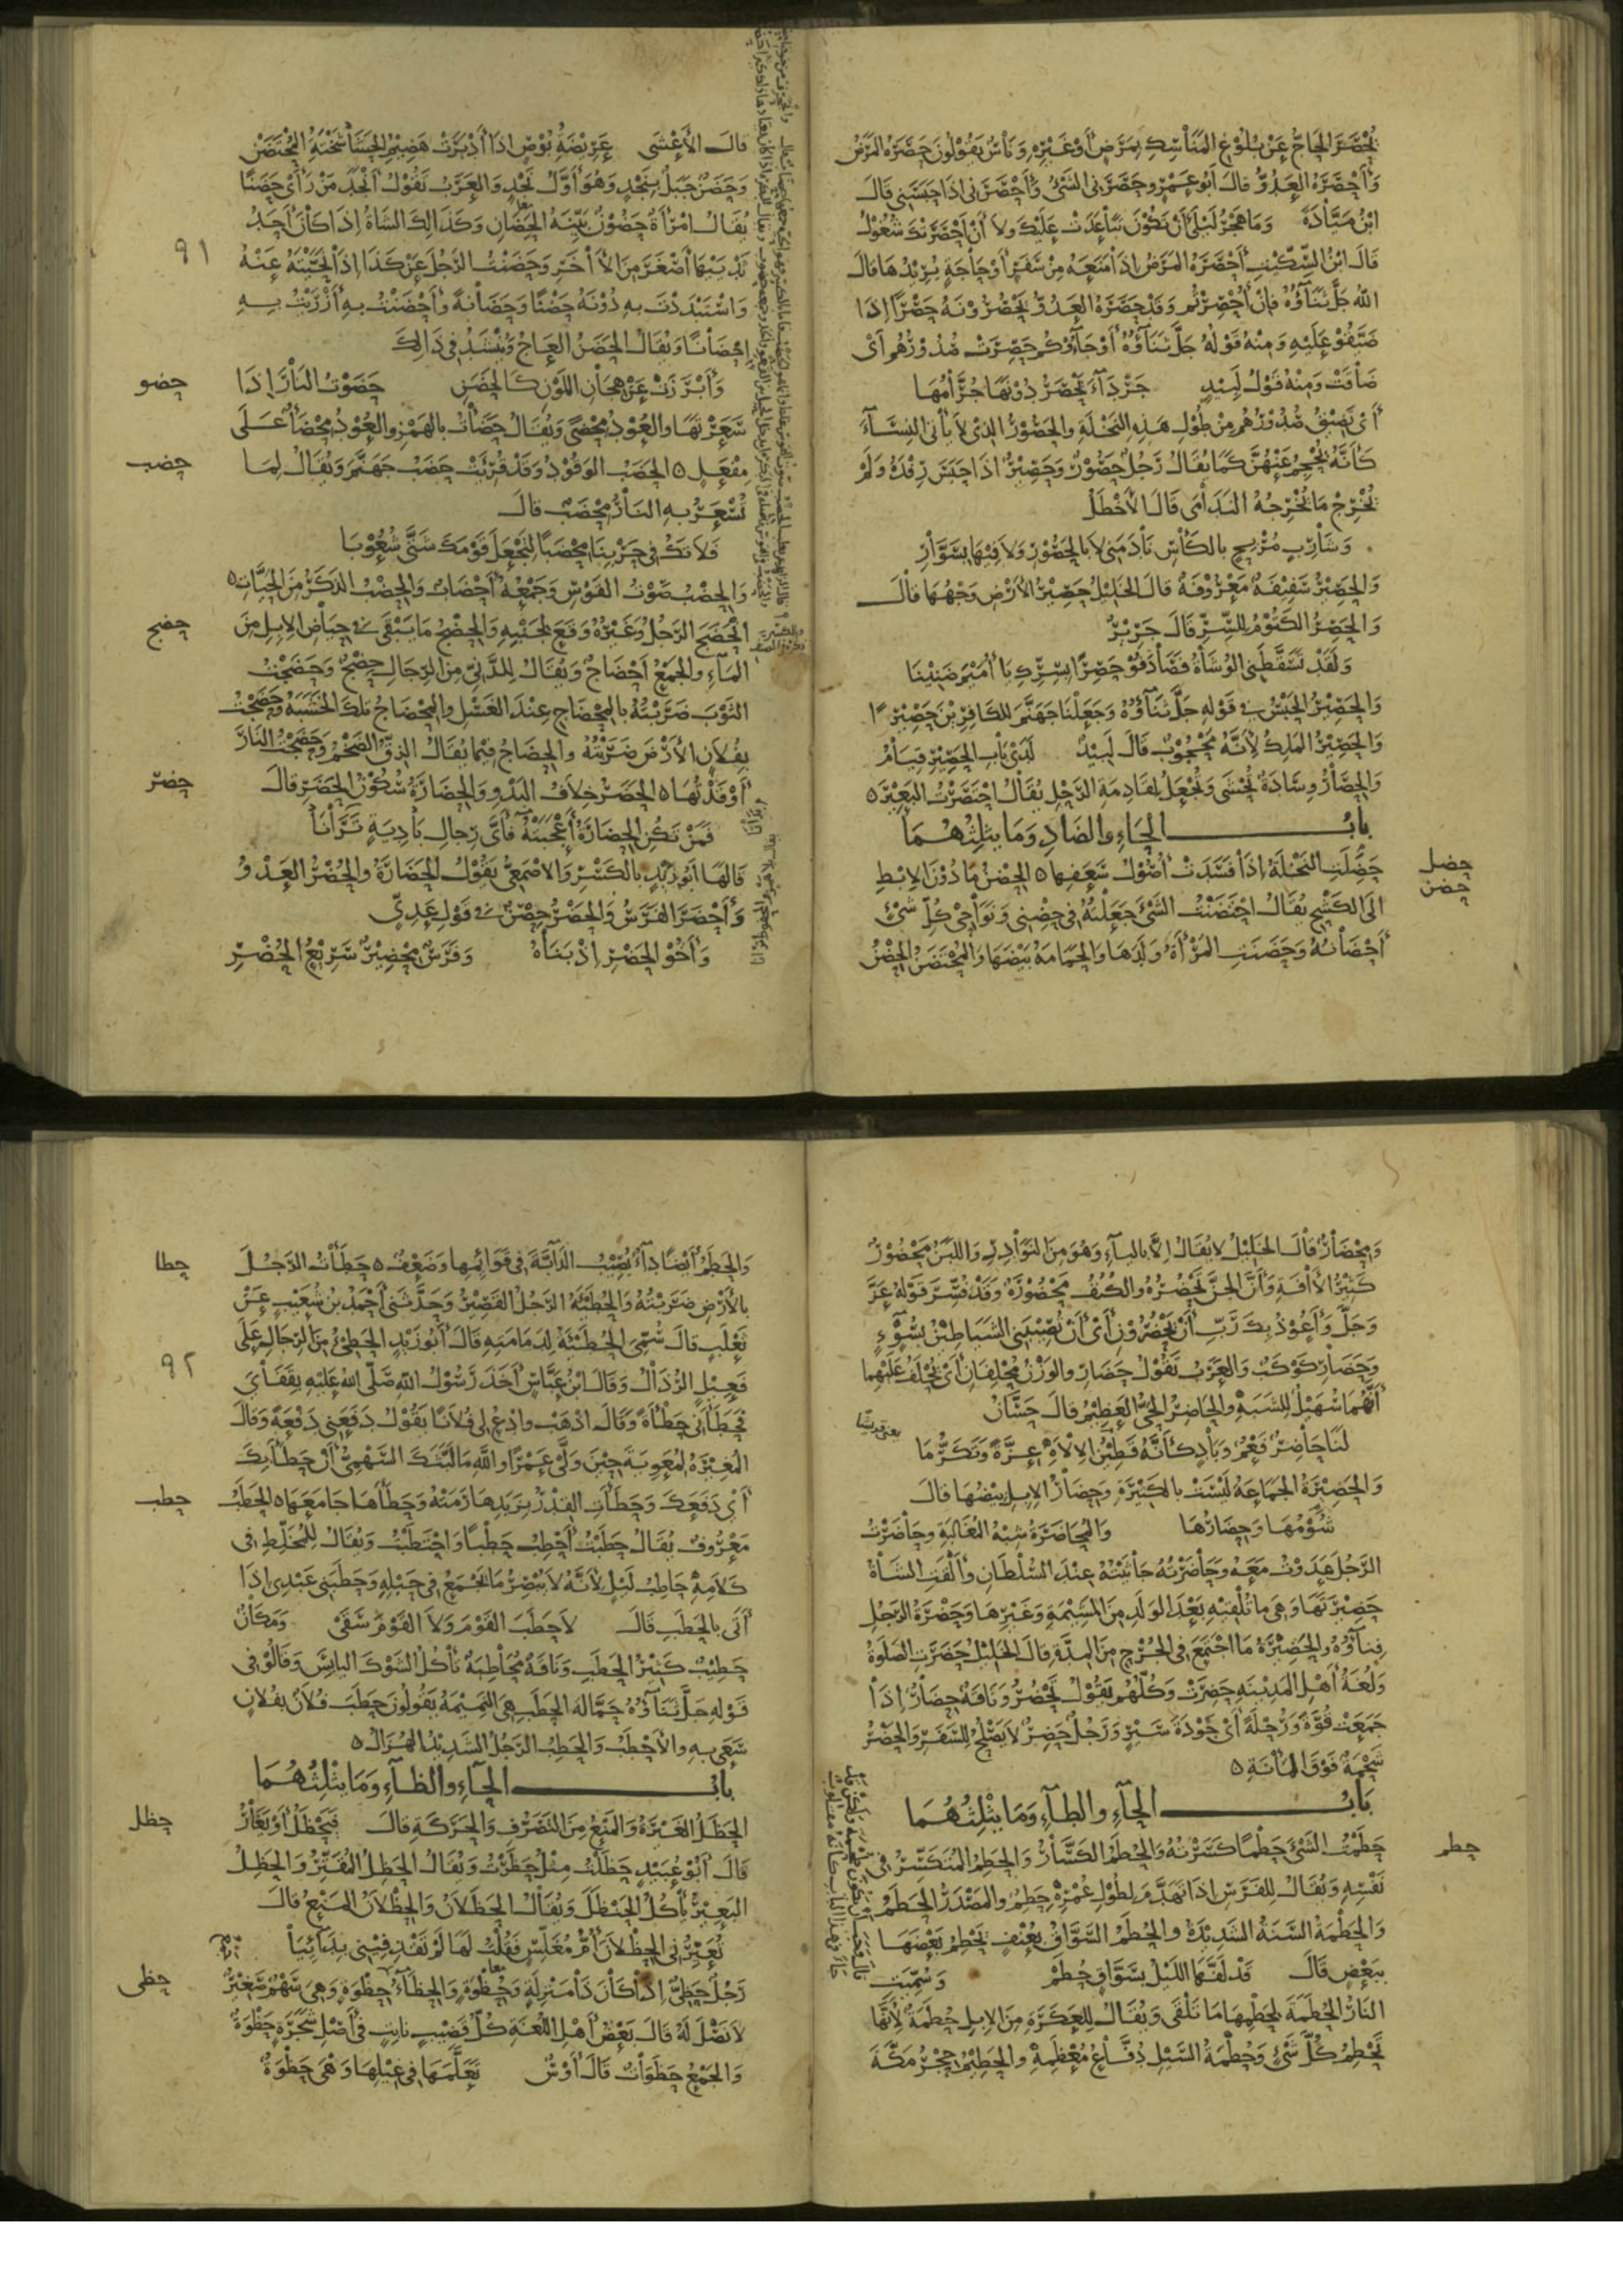 يُحْصَرَ الحَاجُّ عَنْ بُلُوْغِ المَنَاسِكِ بِمَرَضٍ أَوْ غَيْرِهِ وَنَاسٌ يَقُوْلُوْنَ حَصَرَهُ المَرَضُ
وَأَحْصَرَهُ العَدُوُّ قالَ أَبُو عَمْرٍو حَصَرَنِى الشَىْءُ وَأَحْصَرَنِى إذَا حَبَسَنِى قَالَ
ابْنُ مَيَّادَةَ وَمَا هَجْرُ لَيْلَى أَنْ تَكُوْنَ تَبَاعَدَتْ عَلَيْكَ وَلا أَنْ أَحْصَرَتْكَ شُغُوْلُ
قَالَ ابْنُ السِّكِّيْتِ أَحْصَرَهُ المَرَضُ إذَا مَنَعَهُ مِنْ سَفَرٍ أَوْ حَاجَةٍ يُرِيْدُهَا قالَ
اللهُ جَلَّ ثَنَآؤُهُ فَإنْ أُحْصِرْتُمْ وَقَدْ حَصَرَهُ العَدُوُّ يَحْصُرُوْنَهُ حَصْرًا إذَا
ضَيَّقُوْ عَلَيْهِ وَمِنْهُ قَوْلُهُ جَلَّ ثَنَآؤُهُ أَوْ جَآؤُكُمْ حَصِرَتْ صُدُوْرُهُمْ أَىْ
ضَاقَتْ وَمِنْهُ قَوْلُ لَبِيْدٍ جَرْدَآءَ يَحْصَرُ دُوْنَهَا جُرَّامُهَا
أَىْ تَضِيْقُ صُدُوْرُهُمْ مِنْ طُوْلِ هَذِهِ النَخْلَةِ والحَصُوْرُ الذِىْ لاَ يَأْتِى النِسَآءَ
كَأَنَّهُ يُحْجِمُ عَنْهُنَّ كَمَا يُقَالُ رَجُلٌ حَصُوْرٌ وَحَصِيْرٌ إذَا حَبَسَ رِفْدَهُ وَلَمْ
يُخْرِجْ مَا يُخْرِجُهُ النَدَامَى قَالَ الأَخْطَلُ
وَشَارِبٍ مُرْبِحٍ بالكَأْسِ نَادَمَنِى لا بِالحَصُوْرِ وَلا فِيْهَا بِسَوَّارِ
وَالحَصِيْرُ سَفِيْفَةٌ مَعْرُوْفَةٌ قالَ الخَلِيْلُ حَصِيْرُ الأَرْضِ وَجْهُهَا قالَ
وَالحَصِرُ الكَتُوْمُ لِلسِّرِّ قَالَ جَرِيْرٌ
وَلَقَدْ تَسَقَّطَنِى الوُشَاةُ فَصَادَفُوْ حَصِرًا بِسِرِّكِ يَا أُمَيْمَ ضَنِيْنَا
وَالحَصِيْرُ الحَبْسُ فِى قَوْلِهِ جَلَّ ثَنَآؤُهُ وَجَعَلْنَا جَهَنَّمَ لِلكَافِرِيْنَ حَصِيْرًا
وَالحَصِيْرُ المَلِكُ لأَنَّهُ مَحْجُوْبٌ قَالَ لَبِيْدٌ لَدَى بَابِ الحَصِيْرِ قِيَامُ
وَالحِصَارُ وِسَادَةٌ تُحْشَى وَتُجْعَلُ لِقَادِمَةِ الرَحْلِ يُقَالُ احْتَصَرْتُ البَعِيْرَ ه
بابُ الحَاءِ والضَادِ وَمَا يثلِثهُمَا
حضل
حَضَلَتِ النَخْلَةُ إذَا فَسَدَتْ أُصُوْلُ سَعَفِهَا ه الحِضْنُ مَا دُوْنَ الإبْطِ
حضن
الَى الكَشْحِ يُقَالُ احْتَضَنْتُ الشَىْءَ جَعَلْتُهُ فِى حِضْنِى وَنَوَاحِىْ كُلِّ شَىْءٍ
أَحْضَانُهُ وَحَضَنَتِ المَرْأَةُ وَلَدَهَا وَالحَمَامَةُ بَيْضَهَا وَالمُحْتَضَنُ الحِضْنُ
قالَ الأَعْشَى عَرِيْضَةُ بُوْصٍ إذَا أَدْبَرَتْ هَضِيْمُ الحَشَا شَخْتَةُ المُحْتَضَنْ
وَحَضَنٌ جَبَلٌ بِنَجْدٍ وَهُوَ أَوَّلُ نَجْدٍ وَالعَرَبُ تَقُوْلُ أَنْجَدَ مَنْ رَأَىْ حَضَنًا
يُقَالُ امْرَأَةٌ حَضُوْنٌ بَيِّنَةُ الحِضَانِ وَكَذَالِكَ الشَاةُ إذَا كَانَ أَحَدُ
ثَدْيَيْهَا أَصْغَرَ مِنَ الآخَرِ وَحَضَنْتُ الرَجُلَ عَنْ كَذَا إذَا نَحَّيْتَهُ عَنْهُ
٩١
وَاسْتَبْدَدْتَ بِهِ دُوْنَهُ حَضْنًا وَحَضَانَةً وَأَحْضَنْتُ بِهِ أَزْرَيْتُ بِهِ
إحْضَانًا وَيُقَالُ الحَضَنُ العَاجُ وَيُنْشَدُ فِى ذَالِكَ
وَأَبْرَزَتْ عَنْ هِجَانِ اللَوْنِ كَالحَضَنِ حَضَوْتُ النَارَ إذَا
حضو
سَعَرْتَهَا والعُوْدُ مِحْضًى وَيُقَالُ حَضَأْتُ بالهَمْزِ والعُوْدُ مِحْضَأٌ عَلَى
مِفْعَلٍ ه الحَضَبُ الوَقُوْدُ وَقَدْ قُرِئَتْ حَضَبُ جَهَنَّمَ وَيُقَالُ لِمَا
حضب
تُسْعَرُ بِهِ النَارُ مِحْضَبٌ قالَ
فَلا تَكُ فِى حَرْبِنَا مِحْضَبًا لِتَجْعَلَ قَوْمَكَ شَتَّى شُعُوْبَا
وَالحِضْبُ صَوْتُ القَوْسِ وَجَمْعُهُ أَحْضَابٌ وَالحِضْبُ الذَكَرُ مِنَ الحَيَّاتِ ه
انْحَضَجَ الرَجُلُ وَغَيْرُهُ وَقَعَ لِجَنْبِهِ وَالحِضْجُ مَا يَبْقَى فِى حِيَاضِ الإبِلِ مِنَ
حضج
المَآءِ والجَمْعُ أَحْضَاجٌ وَيُقَالُ لِلدَّنِىِّ مِنَ الرِجَالِ حِضْجٌ وَحَضَجْتُ
الثَوْبَ ضَرَبْتُهُ بالمِحْضَاجِ عِنْدَ الغَسْلِ والمِحْضَاجُ تِلْكَ الخَشَبَةُ وَحَضَجْتُ
بِفُلانٍ الأَرْضَ ضَرَبْتُهُ والحِضَاجُ فِيْمَا يُقَالُ الزِقُّ الضَخْمُ وَحَضَجْتُ النَارَ
أَوْقَدْتُهَا ه الحَضَرُ خِلافُ البَدْوِ وَالحِضَارَةُ سُكُوْنُ الحَضَرِ قالَ
حضر
فَمَنْ تَكُنِ الحِضَارَةُ أَعْجَبَتْهُ فَأَىَّ رِجَالِ بَادِيَةٍ تَرَانَا
قَالَهَا أَبُو زَيْدٍ بالكَسْرِ وَالأَصْمَعِىُّ يَقُوْلُ الحَضَارَةُ والحُضْرُ العَدْوُ
وَأَحْضَرَ الفَرَسُ وَالحَضْرُ حِصْنٌ فِى قَوْلِ عَدِىٍّ
وَأَخُو الحَضْرِ إذْ بَنَاهُ وَفَرَسٌ مِحْضِيْرٌ سَرِيْعُ الحُضْرِ
وَمِحْضَارٌ قَالَ الخَلِيْلُ لا يُقَالُ إلاَّ باليَآءِ وَهُوَ مِنَ النَوَادِرِ وَاللَبَنُ مَحْضُوْرٌ
كَثِيْرُ الآفَةِ وَأَنَّ الجِنَّ تَحْضُرُهُ والكُنُفُ مَحْضُوْرَةٌ وَقَدْ فُسِّرَ قَوْلُهُ عَزَّ
وَجَلَّ وَأَعُوْذُ بِكَ رَبِّ أَنْ يَحْضُرُوْنِ أَىْ أَنْ تُصِيْبَنِى الشَيَاطِيْنُ بِسُوْءٍ
وَحَضَارِ كَوْكَبٌ وَالعَرَبُ تَقُوْلُ حَضَارِ والوَزْنُ مُحْلِفَانِ أَىْ يُحْلَفُ عَلَيْهِمَا
أَنَّهُمَا سُهَيْلٌ لِلشَبَهِ والحَاضِرُ الحَىُّ العَظِيْمُ قالَ حَسَّانُ
لَنَا حَاضِرٌ فَعْمٌ وَبَادٍ كَأَنَّهُ قَطِيْنُ الإلاَهِ عِزَّةً وَتَكَرُّمَا
وَالحَضِيْرَةُ الجَمَاعَةُ لَيْسَتْ بالكَثِيْرَةِ وَحِضَارُ الإبِلِ بِيْضُهَا قالَ
شُوْمُهَا وَحِضَارُهَا وَالمُحَاضَرَةُ شِبْهُ المُغَالَبَةِ وحَاضَرْتُ
الرَجُلَ عَدَوْتُ مَعَهُ وَحَاضَرْتُهُ جَاثَيْتُهُ عِنْدَ السُلْطَانِ وأَلْقَتِ الشَاةُ
حَضِيْرَتَهَا وَهِىَ مَا تُلْقِيْهِ بَعْدَ الوَلَدِ مِنَ المَشِيْمَةِ وَغَيْرِهَا وَحَضْرَةُ الرَجُلِ
فِنَآؤُهُ والحَضِيْرَةُ مَا اجْتَمَعَ فِى الجُرْحِ مِنَ المِدَّةِ قالَ الخَلِيْلُ حَضَرَتِ الصَلوةُ
وَلُغَةُ أَهْلِ المَدِيْنَةِ حَضِرَتْ وَكُلُّهُمْ يَقُوْلُ تَحْضُرُ وَنَاقَةٌ حِضَارٌ إذَا
جَمَعَتْ قُوَّةً وَرُحْلَةً أَىْ جَوْدَةَ سَيْرٍ وَرَجُلٌ حَضِرٌ لا يَصْلُحُ لِلسَفَرِ وَالحَضْرُ
شَحْمَةٌ فَوْقَ المَأْنَةِ ه
بَابُ الحَآءِ والطَآءِ وَمَا يثْلِثُهُمَا
حطم
حَطَمْتُ الشَىْءَ حَطْمًا كَسَرْتُهُ وَالحُطَمُ الكَسَّارُ وَالحَطِمُ المُتَكَسِّرُ فِى
نَفْسِهِ وَيُقَالُ لِلفَرَسِ إذَا تَهَدَّمَ لِطُوْلِ عُمْرِهِ حَطِمٌ والمَصْدَرُ الحَطَمُ
وَالحَطْمَةُ السَنَةُ الشَدِيْدَةُ والحُطَمُ السَوَّاقُ بِعُنْفٍ يَحْطِمُ بَعْضَهَا
بِبَعْضٍ قَالَ قَدْ لَفَّهَا اللَيْلُ بِسَوَّاقٍ حُطَمْ وَسُمِّيَتِ
النَارُ الحُطَمَةَ لِحَطْمِهَا مَا تَلْقَى وَيُقَالُ لِلعَكَرَةِ مِنَ الإبِلِ حُطَمَةٌ لأَنَّهَا
تَحْطِمُ كُلَّ شَىْءٍ وَحُطْمَةُ السَيْلِ دُفَّاعُ مُعْظَمِهِ والحَطِيْمُ حِجْرُ مَكَّةَ
وَالحَطَمُ أَيْضًا دَآءٌ يُصِيْبُ الدَآبَّةَ فِى قَوَائِمِهَا وَضَعْفٌ ه حَطَأْتُ الرَجُلَ
حطا
بالأَرْضِ ضَرَبْتُهُ وَالحُطَيْئَةُ الرَجُلُ القَصِيْرُ وَحَدَّثَنِى أَحْمَدُ بْنُ شُعَيْبٍ عَنْ
ثَعْلَبٍ قالَ سُمِّىَ الحُطَيْئَةُ لِدَمَامَتِهِ قالَ أَبُو زَيْدٍ الحَطِىْءُ مِنَ الرِجَالِ عَلَى
فَعِيْلٍ الرُذَالُ وَقَالَ ابْنُ عَبَّاسٍ أَخَذَ رَسُوْلُ اللهِ صَلَّى اللهُ عَلَيْهِ بِقَفَاىَ
٩٢
فَحَطَأَنِى حَطْأَةً وَقَالَ اذْهَبْ وادْعُ لِى فُلانًا يَقُوْلُ دَفَعَنِى دَفْعَةً وَقَالَ
المُغِيْرَةُ لِمُعَوِيَةَ حِيْنَ وَلَّى عَمْرًا واللهِ مَا لَبَّثَكَ السَهْمِىُّ أَنْ حَطَأَ بِكَ
أَىْ دَفَعَكَ وَحَطَأَتِ القِدْرُ بِزَبَدِهَا رَمَتْهُ وَحَطَأَهَا جَامَعَهَا ه الحَطَبُ
حطب
مَعْرُوفٌ يُقَالُ حَطَبْتُ أَحْطِبُ حَطْبًا وَاحْتَطَبْتُ وَيُقَالُ لِلْمُخَلِّطِ فِى
كَلامِهِ حَاطِبُ لَيْلٍ لأَنَّهُ لا يُبْصِرُ مَا يَجْمَعُ فِى حَبْلِهِ وَحَطَبَنِى عَبْدِى إذَا
أَتَى بالحَطَبِ قَالَ لا حَطَبَ القَوْمَ وَلا القَوْمَ سَقَىْ وَمَكَانٌ
حَطِيْبٌ كَثِيْرُ الحَطَبِ وَنَاقَةٌ مُحَاطِبَةٌ تَأْكُلُ الشَوْكَ اليَابِسَ وَقَالُوْ فِى
قَوْلِهِ جَلَّ ثَنَآؤُهُ حَمَّالَةَ الحَطَبِ هِىَ النَمِيْمَةُ يَقُولُونَ حَطَبَ فُلانٌ بِفُلانٍ
سَعَى بِهِ والأَحْطَبُ وَالحَطِبُ الرَجُلُ الشَدِيْدُ الهُزَالِ ه
بابُ الحَاءِ والظَآءِ وَمَا يثْلِثُهُمَا
الحَظَلُ الغَيْرَةُ وَالمَنْعُ مِنَ التَصَرُّفِ وَالحَرَكَةِ قالَ فَيَحْظُلُ أَوْ يَغَارُ
حظل
قالَ أَبُوْ عُبَيْدٍ حَظَلْتُ مِثْلُ حَظَرْتُ وَيُقَالُ الحَظِلُ المُقَتِّرُ وَالحَظِلُ
البَعِيْرُ يَأْكُلُ الحَنْظَلَ وَيُقَالُ الحَظَلانُ وَالحِظْلانُ المَنْعُ قَالَ
تُعَيِّرُنِى الحِظْلانَ أُمُّ مُغَلِّسٍ فَقُلْتُ لَهَا لَمْ تَقْذِفِيْنِى بِدَائِيَا
رَجُلٌ حَظِىٌّ إذَا كَانَ ذَا مَنْزِلَةٍ وَحُظْوَةٍ وَالحِظَآءُ حَظْوَةٍ وَهِىَ سَهْمٌ صَغِيْرٌ
حظى
لا نَصْلَ لَهُ قَالَ بَعْضُ أَهْلِ اللُغَةِ كُلُّ قَضِيْبٍ نَابِتٍ فِى أَصْلِ شَجَرَةٍ حَظْوَةٌ
وَالجَمْعُ حَظَوَاتٌ قَالَ أَوْسٌ تَعَلَّمَهَا فِى غِيْلِهَا وَهْىَ حَظْوَةٌ